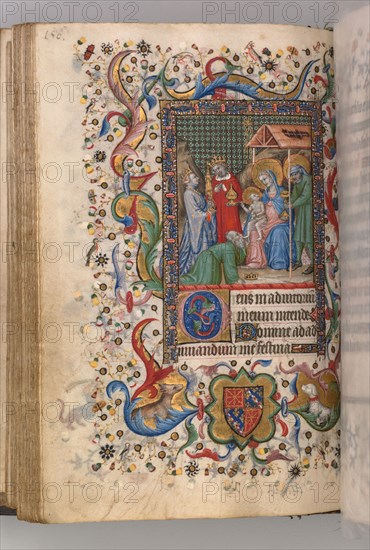 PHOTO12
eus in adiutoriu
meum intende
Domine ad ad
iuuandum me festina